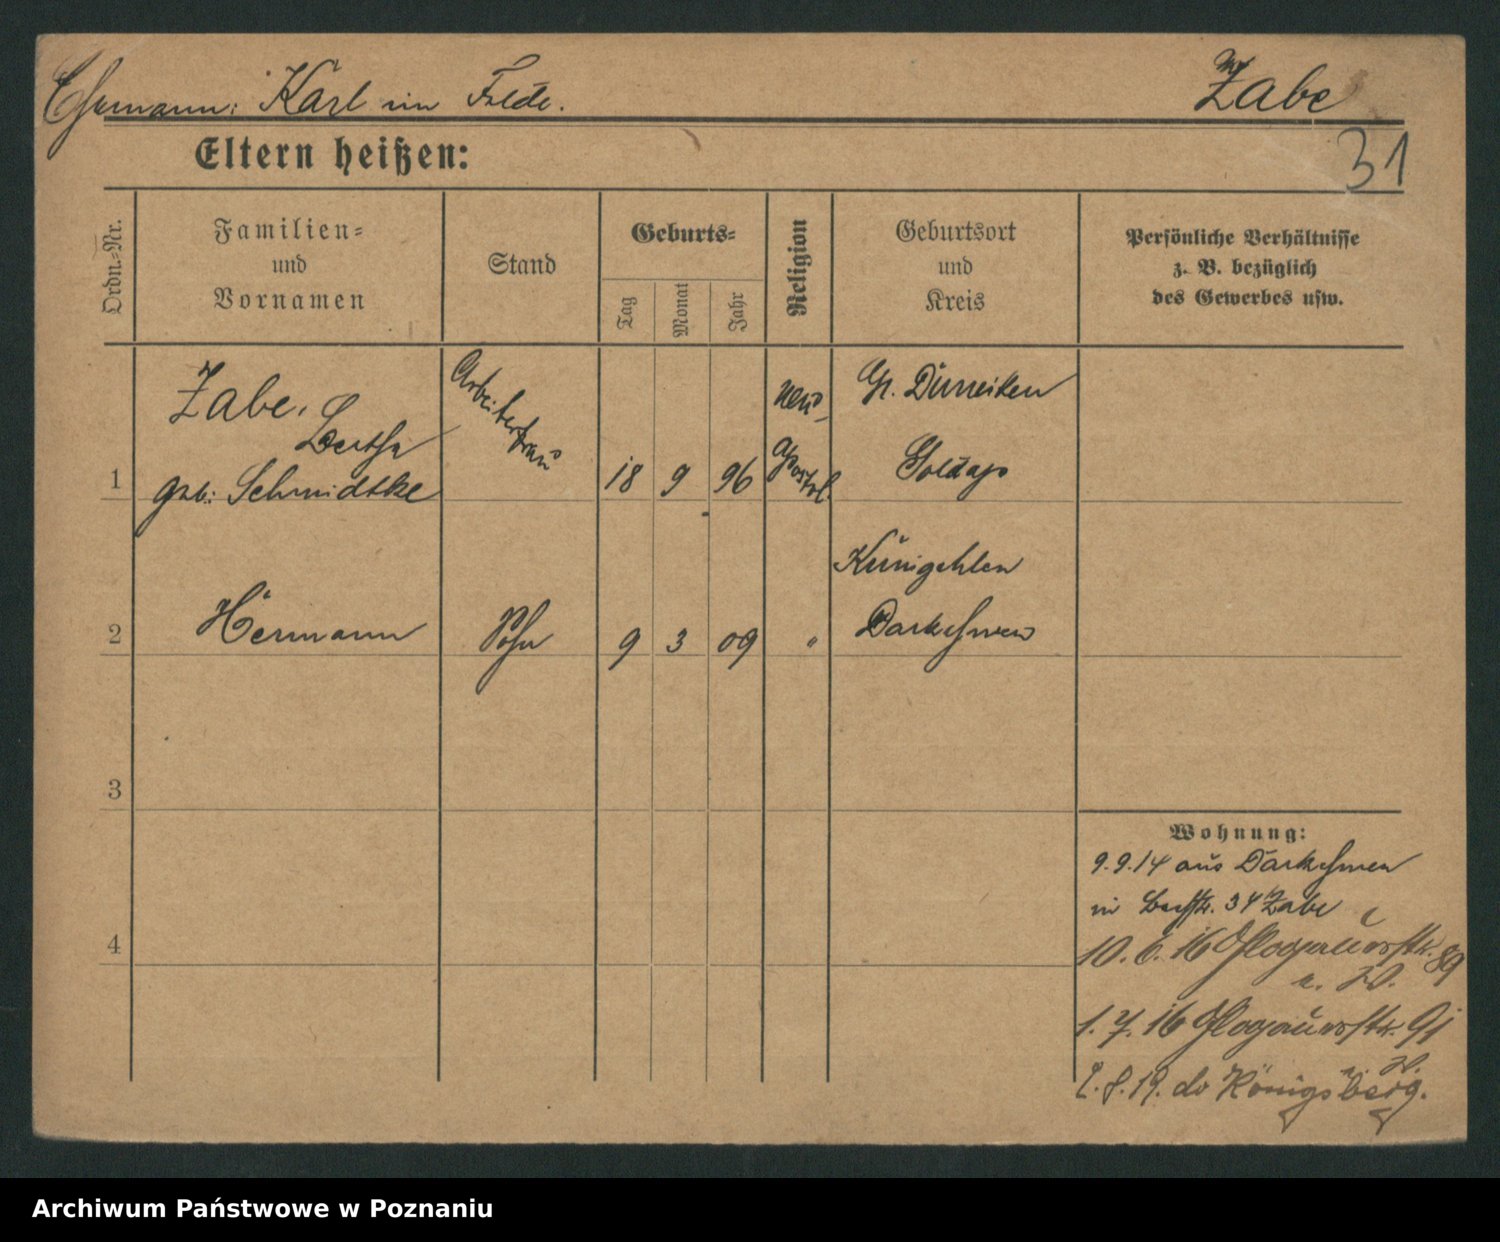 Ehemann: Karl im Felde.
Zabe
31
Eltern heißen:
Ordn.-Nr.
Familien-
und
Vornamen
Stand
Geburts-
Tag
Monat
Jahr
Religion
Geburtsort
und
Kreis
Persönliche Verhältnisse
z. B. bezüglich
des Gewerbes usw.
1
Zabe,
Bertha
geb: Schmidtke
Arbeiterfrau
18 9 96
neu-
Apostol.
Gr.
Goldap
2
Hermann
Sohn
9 3 09
"
Darkehmen
3
4
Wohnung:
9.9.14 aus Darkehmen
in 34 Zabe
10. 6. 16 Glogauerstr. 89
1. 7. 16 Glogauerstr. 91
19. do Königsberg.
Archiwum Państwowe w Poznaniu